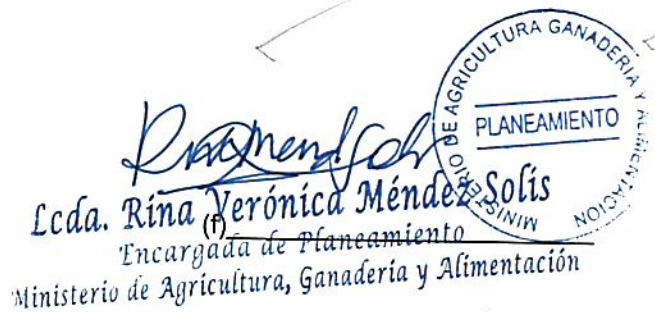 MINISTERIO DE AGRICULTURA GANADERIA Y ALIMENTACION
PLANEAMIENTO
Lcda. Rina Verónica Méndez Solís
(f)
Encargada de Planeamiento
Ministerio de Agricultura, Ganadería y Alimentación